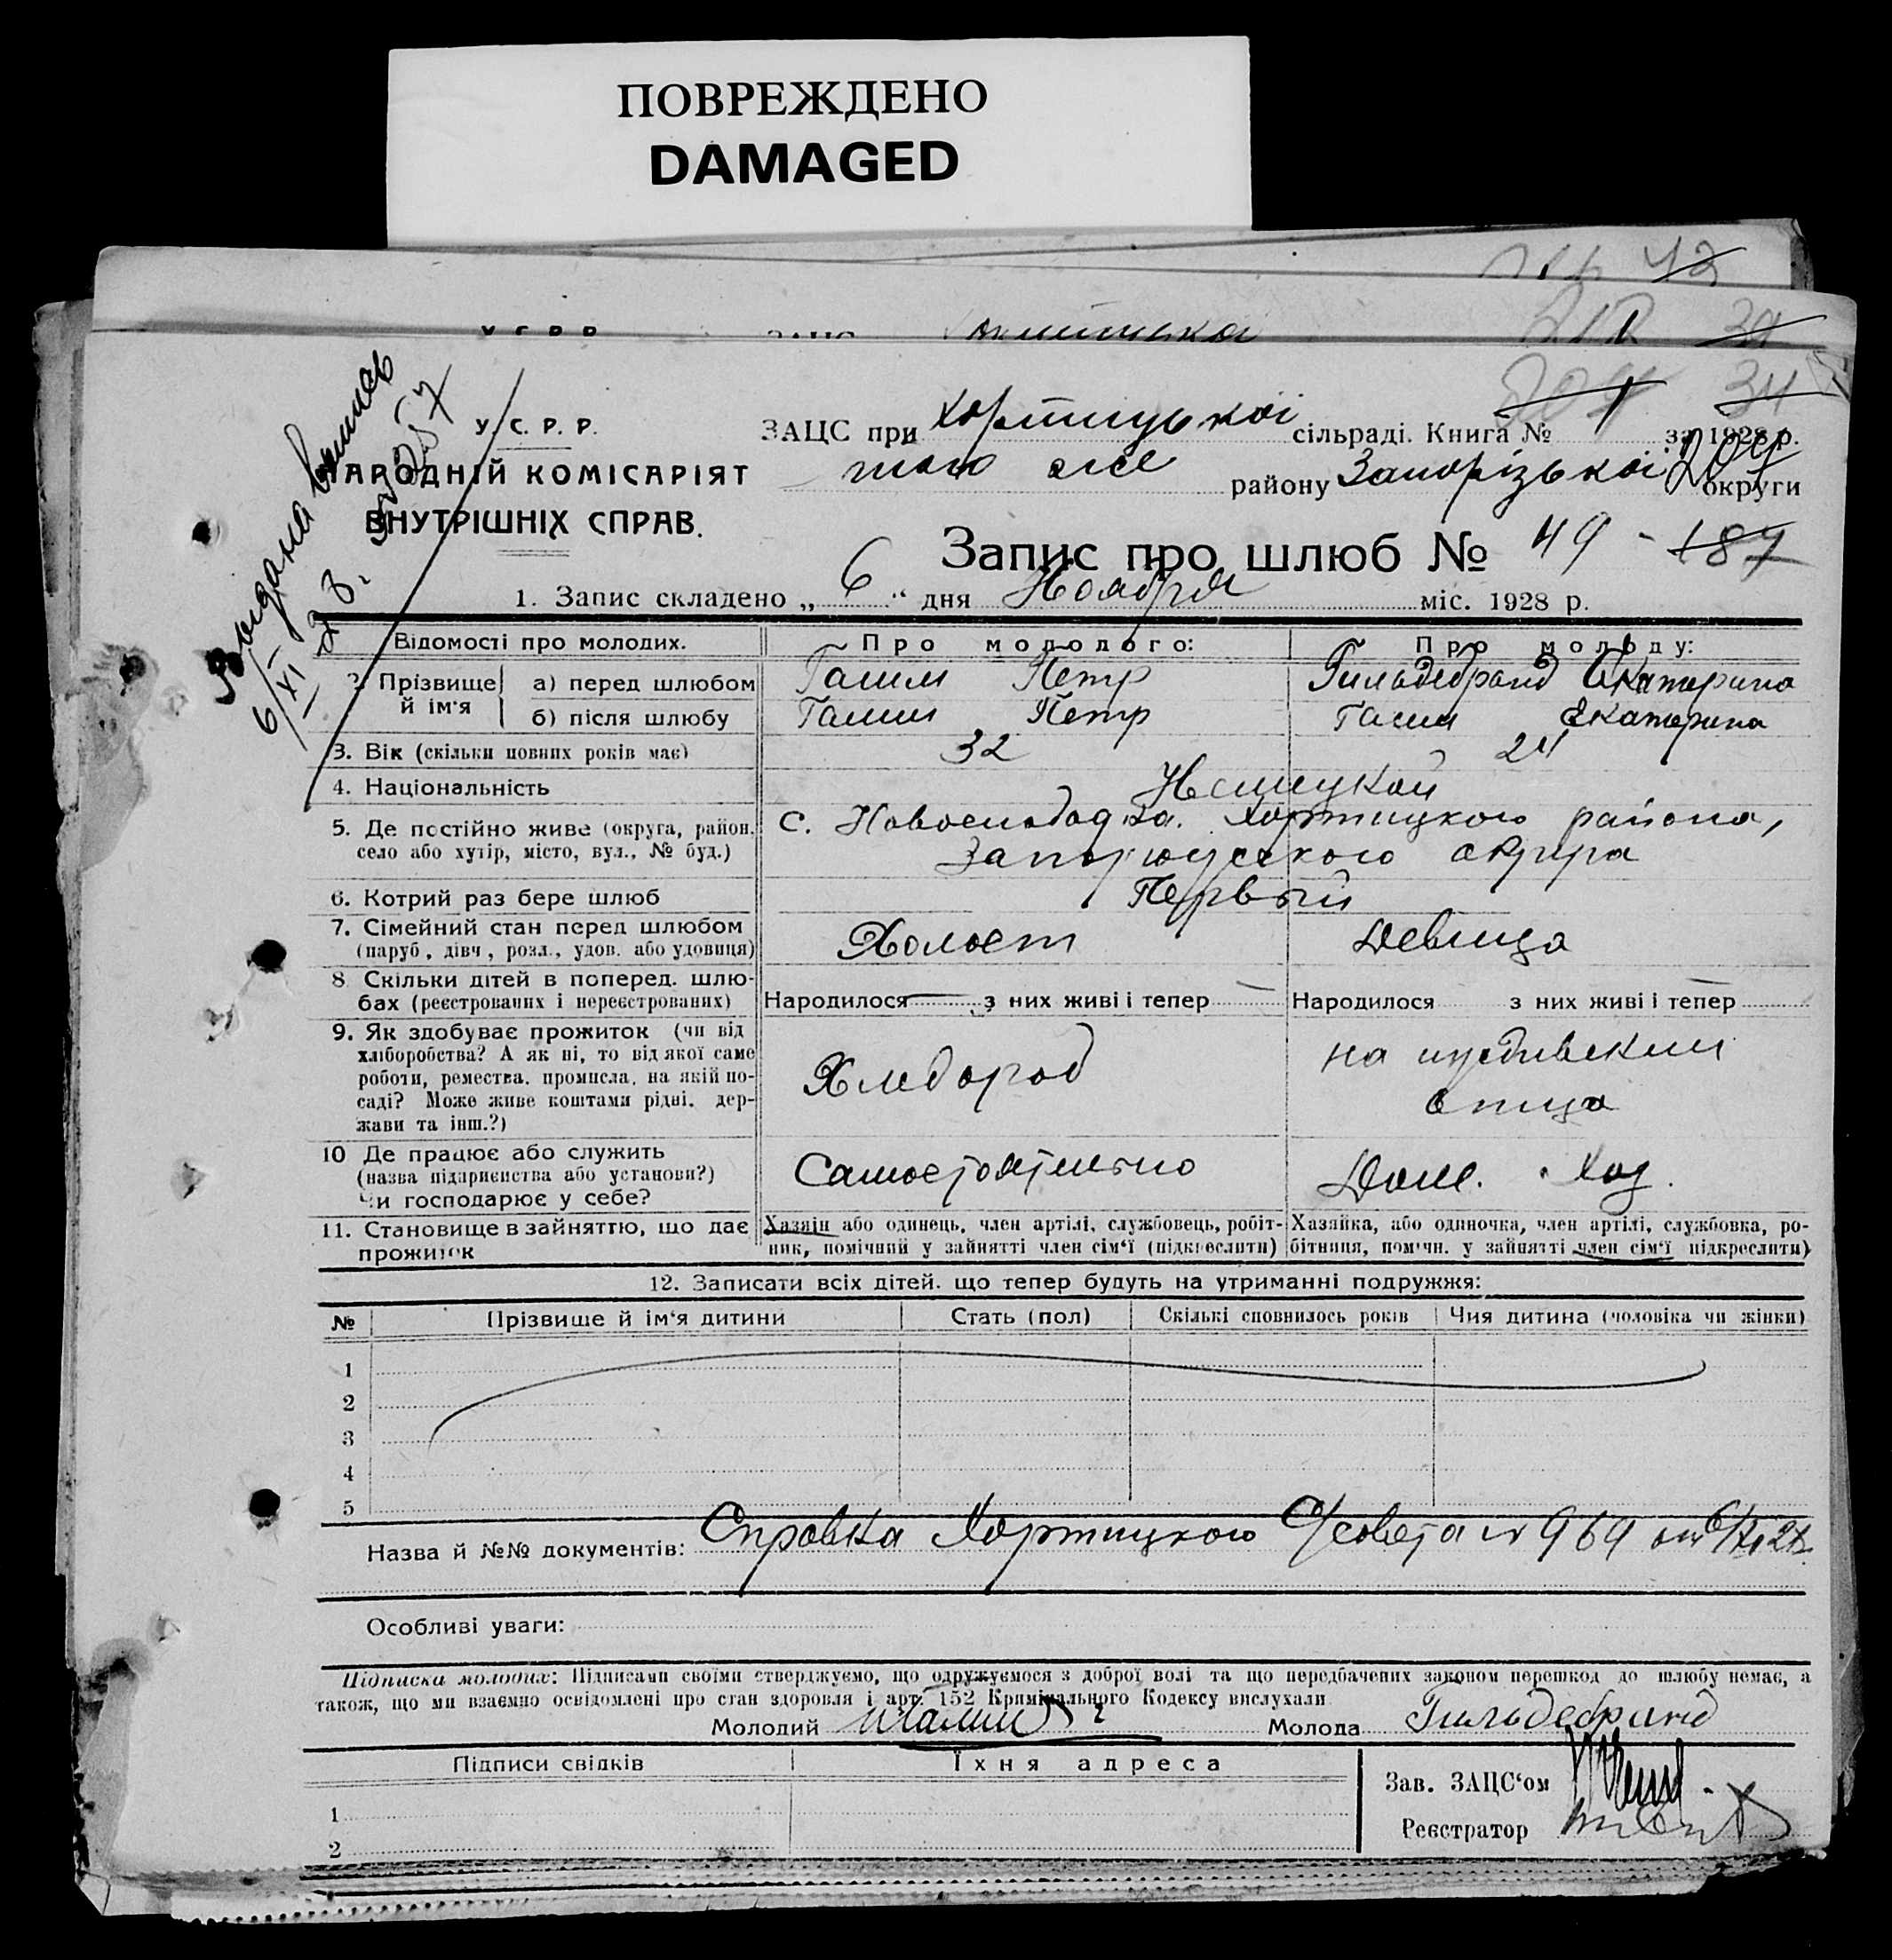 ПОВРЕЖДЕНО
DAMAGED
У. С. Р. Р.
НАРОДНІЙ КОМІСАРІЯТ
ВНУТРІШНІХ СПРАВ.
Видана
6/XI 28.
34
ЗАЦС при Хортицькоі сільраді. Книга № 1 за 1928 р.
того же району Запорізькоі округи
204
Запис про шлюб № 49 - 187
1. Запис складено „ 6 “ дня Ноября міс. 1928 р.
Відомості про молодих. Про молодого: Про молоду:
2. Прізвище й ім‘я а) перед шлюбом Гамм Петр Гильдебранд Екатерина
б) після шлюбу Гамм Петр Гамм Екатерина
3. Вік (скільки повних років має) 32 24
4. Національність Немецкой
5. Де постійно живе (округа, район, село або хутір, місто, вул., № буд.) с. Новослободка. Хортицкого района,
Запорожского округа
6. Котрий раз бере шлюб Первый
7. Сімейний стан перед шлюбом Холост Девица
(паруб., дівч., розл., удов. або удовиця)
8. Скільки дітей в поперед. шлю-
бах (реєстрованих і нереєстрованих) Народилося — з них живі і тепер — Народилося з них живі і тепер
9. Як здобуває прожиток (чи від
хліборобства? А як ні, то від якої саме
роботи, ремества, промисла, на якій по-
саді? Може живе коштами рідні, дер-
жави та інш.?)
Хлебороб
на иждивении
отца
10 Де працює або служить
(назва підприємства або установи?)
Чи господарює у себе?
Самостоятельно
Дом. Хоз.
11. Становище в зайняттю, що дає
прожиток
Хазяін або одинець, член артілі, службовець, робіт-
ник, помічний у зайнятті член сім‘ї (підкреслити)
Хазяйка, або одиночка, член артілі, службовка, ро-
бітниця, помічн. у зайнятті член сім‘ї підкреслити)
12. Записати всіх дітей, що тепер будуть на утриманні подружжя:
№ Прізвище й ім‘я дитини Стать (пол) Скількі сповнилось років Чия дитина (чоловіка чи жінки)
1
2
3
4
5
Назва й №№ документів: Справка Хортицкого С/совета N 969 от 6/XI 28.
Особливі уваги:
Підписка молодих: Підписами своїми стверджуємо, що одружуємося з доброї волі та що передбачених законом перешкод до шлюбу немає, а
також, що ми взаємно освідомлені про стан здоровля і арт. 152 Кримінального Кодексу вислухали
Молодий Молода Гильдебранд
Підписи свідків Їхня адреса
Зав. ЗАЦС‘ом
1
Реєстратор
2